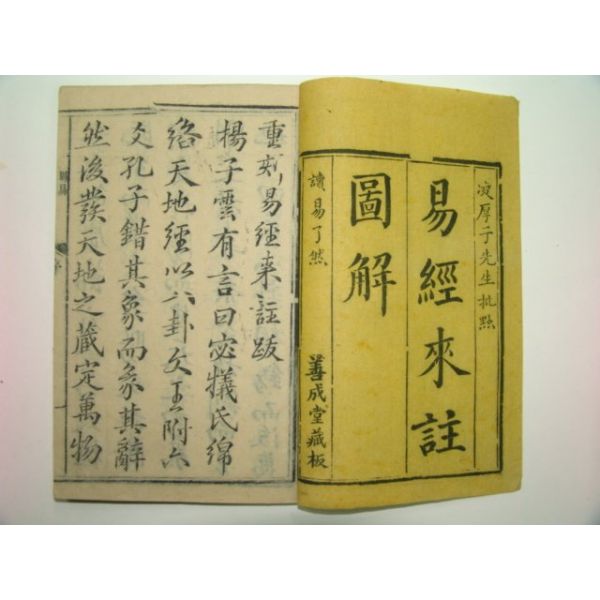 凌厚子先生批點
易經來註
圖解
讀易了然
善成堂藏板
重刻易經來註跋
楊子雲有言曰宓犧氏綿
絡天地經以八卦文王附六
爻孔子錯其象而彖其辭
然後發天地之藏定萬物